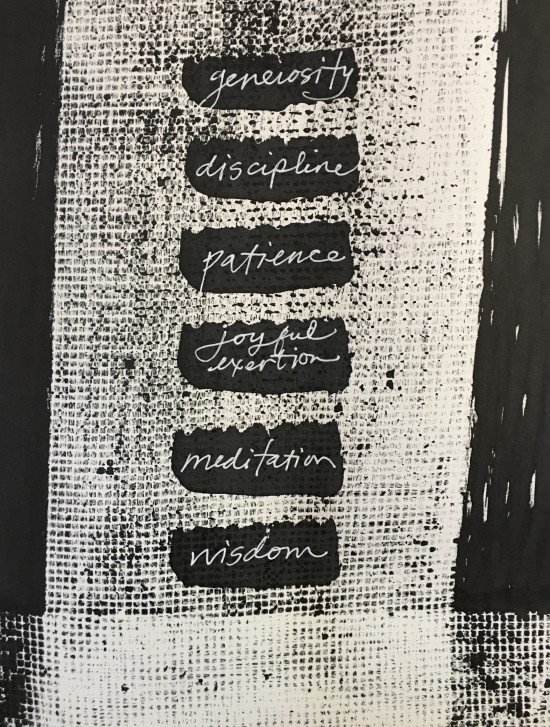 generosity
discipline
patience
joyful
exertion
meditation
wisdom